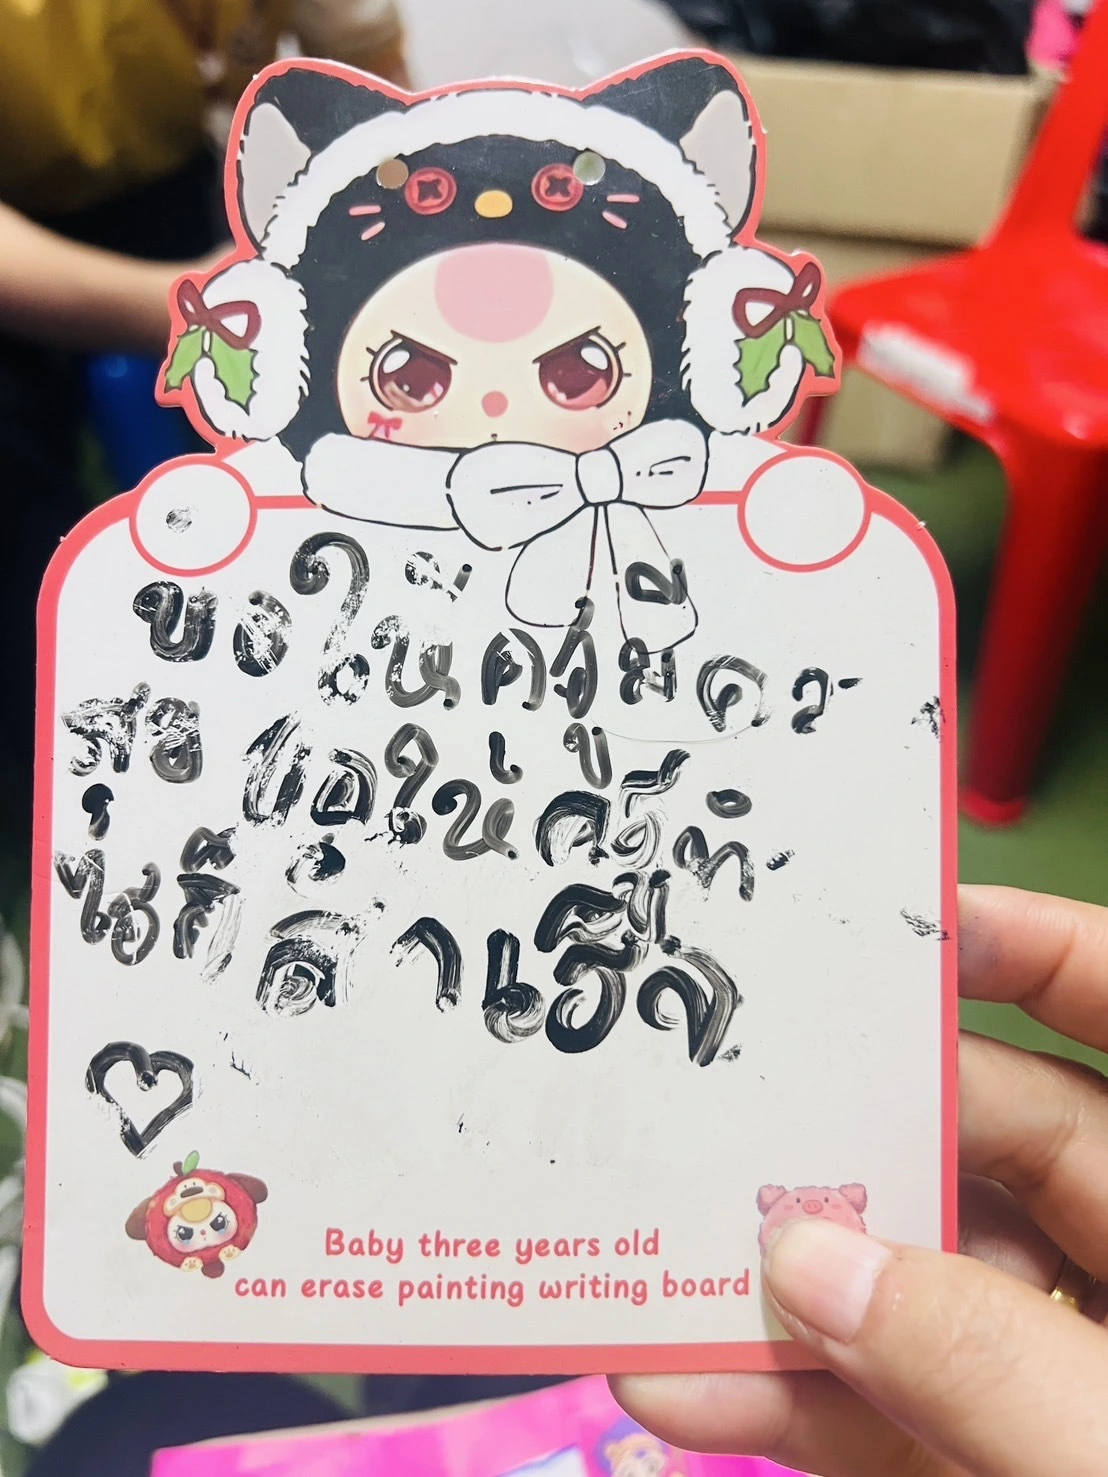 ขอให้ครูมีคว-
สุข ขอให้ครูทำ-
ก็สำเร็จ
Baby three years old
can erase painting writing board